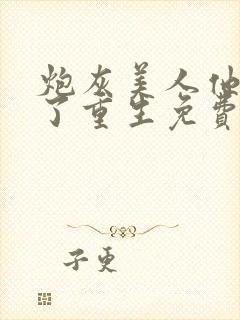 炮灰美人他
了重生免费
子更